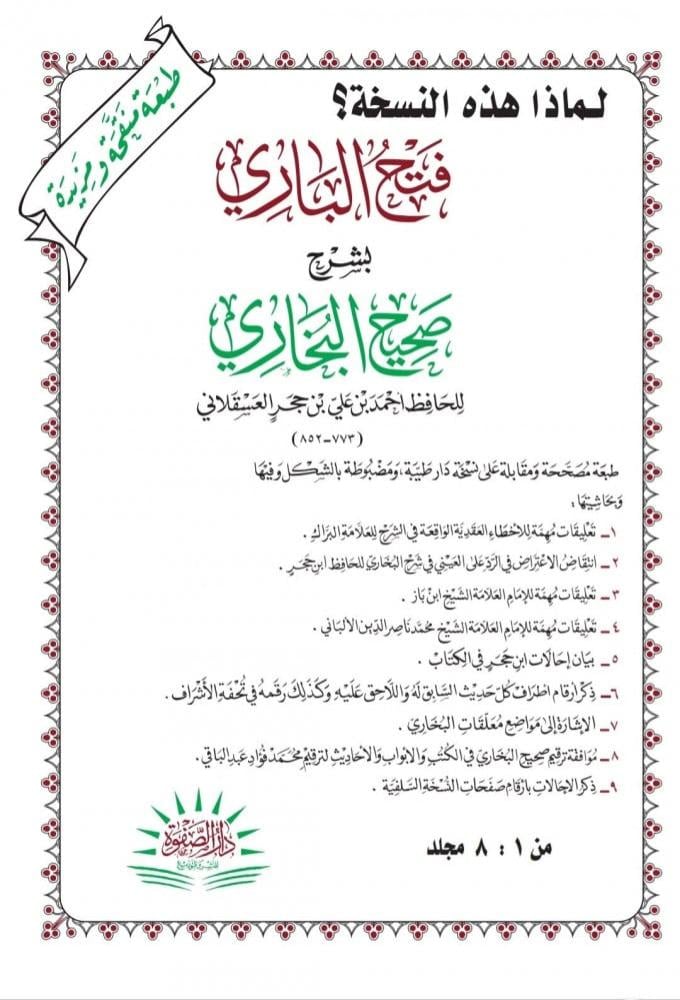 طبعة منقحة ومزيدة
لماذا هذه النسخة؟
فَتْحُ البَارِي
بشرح
صَحِيح البُخَارِي
لِلحَافِظ أحْمَد بْن عَلِيّ بْن حَجَر العَسْقَلَاني
(٧٧٣-٨٥٢)
طبعَة مُصَحَّحَة وَمقَابلة عَلى نسْخَة دَار طَيبَة، وَمَضْبُوطَة بالشَّكل وَفيْهَا
وَبحَاشيَتهَا:
١- تَعْليقَات مُهمَّة للأخطَاءِ العَقَديَّة الوَاقعَة في الشَّرْح للعَلَّامَة البَرَّاك.
٢- انتقَاضُ الاعْتِرَاض في الرَّدّ عَلى العَيْني في شَرْح البُخَاري للحَافظ ابن حَجَر.
٣- تَعْليقَات مُهمَّة للإمَام العَلامَة الشَّيخ ابْن بَاز.
٤- تَعْليقَات مُهمَّة للإمَام العَلامَة الشَّيخ محمَّد نَاصر الدِّين الألبَاني.
٥- بيَان إحَالات ابْن حَجَر في الكتَابْ.
٦- ذكْر أرقَام أطرَاف كُلّ حَديْث السَّابق لَهُ وَاللَّاحق عَليْهِ وَكَذَلكَ رَقمهُ في تُحْفَة الأَشْرَاف.
٧- الإشَارَة إلى مَوَاضع مُعَلقَات البُخَاري.
٨- مُوَافقَة تَرقيْم صَحيْح البُخَاري في الكُتُب وَالأبوَاب وَالأحَاديْث لتَرقيْم مُحَمَّد فُؤَاد عَبد البَاقي.
٩- ذكر الإحَالات بأرْقَام صَفحَات النُّسْخَة السَّلفيَّة.
من ١ : ٨ مجلد
دَارُ الصَّفْوَة
للنشر والتوزيع